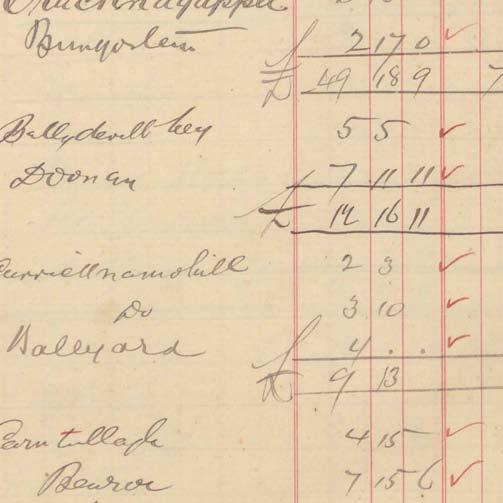 Bungosteen 2 17 0
£ 49 18 9 7
Ballydevitt Hey 5 5
Doonan 7 11 11
£ 12 16 11
2 3
Do 3 10
Ballyard 4 . .
£ 9 13
Carntullagh 4 15
Benroe 7 15 6